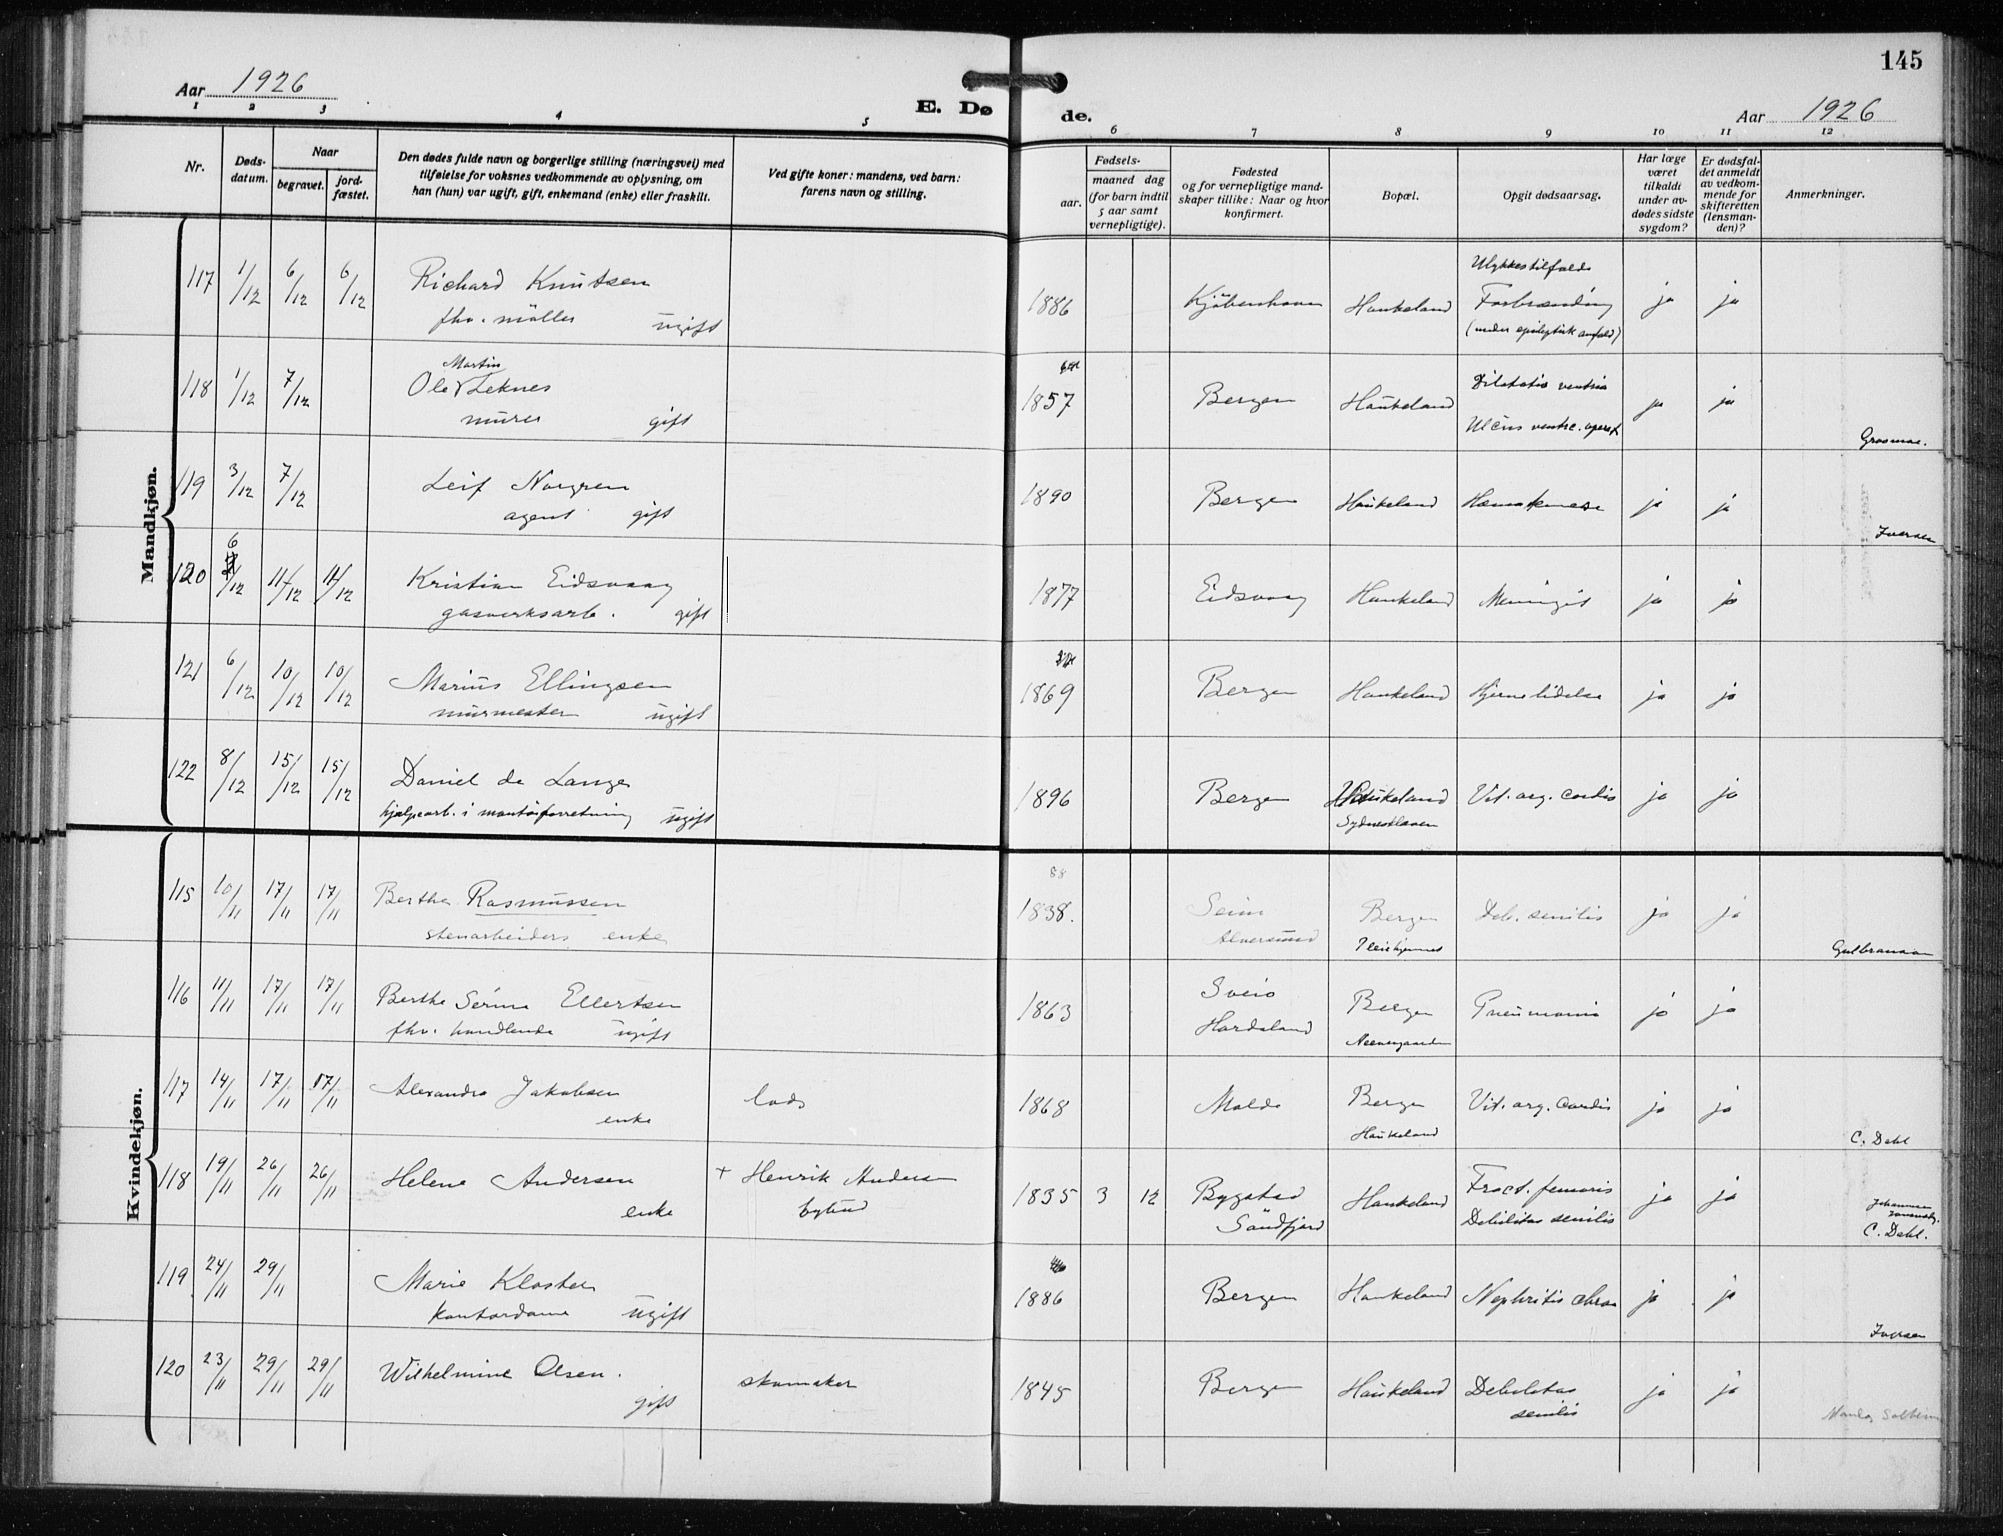 145
Aar 1926
E. Dø
de.
Aar 1926
1 2 3 4 5 6 7 8 9 10 11 12
Nr.
Døds-
datum.
Naar
begravet.
jord-
fæstet.
Den dødes fulde navn og borgerlige stilling (næringsvei) med
tilføielse for voksnes vedkommende av oplysning, om
han (hun) var ugift, gift, enkemand (enke) eller fraskilt.
Ved gifte koner: mandens, ved barn:
farens navn og stilling.
Fødsels-
aar.
maaned dag
(for barn indtil
5 aar samt
vernepligtige).
Fødested
og for vernepligtige mand-
skaper tillike: Naar og hvor
konfirmert.
Bopæl.
Opgit dødsaarsag.
Har læge
været
tilkaldt
under av-
dødes sidste
sygdom?
Er dødsfal-
det anmeldt
av vedkom-
mende for
skifteretten
(lensman-
den)?
Anmerkninger.
Mandkjøn.
117 1/12 6/12 6/12 Richard Knutsen 1886 Kjøbenhavn Haukeland Ulykkestilfælde ja ja
fhv. møller ugift Forbrænding
(under epileptisk anfald)
118 1/12 7/12 Ole Martin Leknes 1857 Bergen Haukeland Dilatatio ventric ja ja
murer gift Ulcus ventric. operat
119 3/12 7/12 Leif Norgren 1890 Bergen Haukeland ja ja
agent gift Iversen
120 6/12 11/12 11/12 Kristian Eidsvaag 1877 Eidsvaag Haukeland Meningit ja ja
gasverksarb. gift
121 6/12 10/12 10/12 Marius Ellingsen 1869 Bergen Haukeland Hjernelidelse ja ja
murmester ugift
122 8/12 15/12 15/12 Daniel de Lange 1896 Bergen Haukeland Vit. org. cordis ja ja
hjælpearb. i montørforretning ugift
Kvindekjøn.
115 10/11 17/11 17/11 Berthe Rasmussen 88 1838. Seim Bergen Deb. senilis ja ja
stenarbeiders enke Alversund Pleiehjemmet Gulbransen
116 11/11 17/11 17/11 Berthe Serine Ellertsen 1863 Sveio Bergen Pneumonia ja ja
fhv. handlende ugift Hordaland
117 14/11 17/11 17/11 Alexandra Jakobsen lods 1868 Molde Bergen Vit. org. cordis ja ja
enke Haukeland C. Dahl
118 19/11 26/11 26/11 Helene Andersen + Henrik Andersen 1835 3 12 Bygstad Haukeland Fract. femoris ja ja
enke bybud Søndfjord Debilitas senilis
C. Dahl.
119 24/11 29/11 Marie Kloster 1886 Bergen Haukeland Nephritis chron ja ja
kontordame ugift Iversen
120 23/11 29/11 29/11 Wilhelmine Olsen. skomaker 1845 Bergen Haukeland Debilitas ja ja
gift senilis